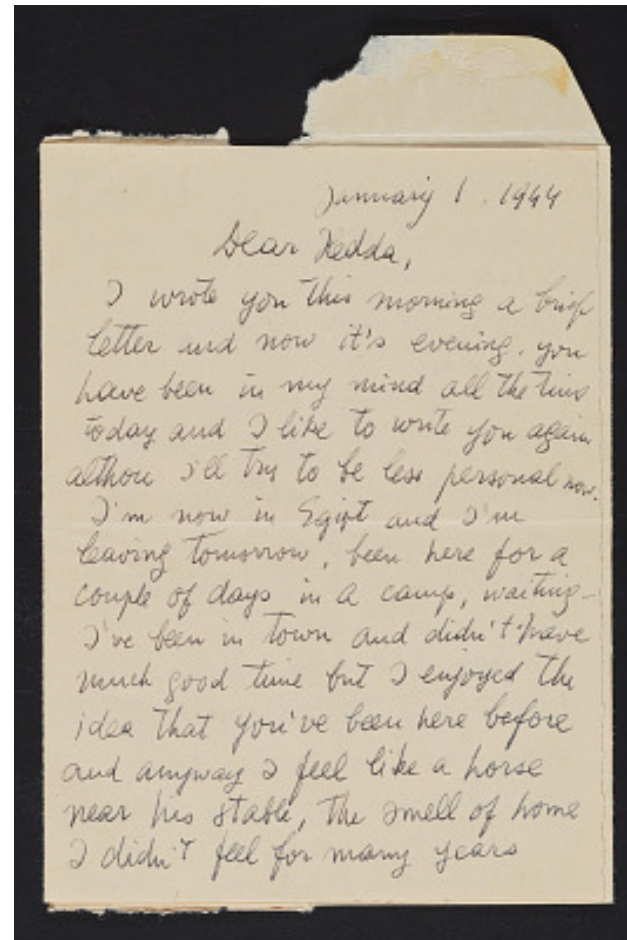 January 1. 1944
Dear Hedda,
I wrote you this morning a brief
letter and now it's evening. you
have been in my mind all the time
today and I like to write you again
althou I'll try to be less personal now.
I'm now in Egipt and I'm
leaving tomorrow, been here for a
couple of days in a camp, waiting -
I've been in town and didn't have
much good time but I enjoyed the
idea that you've been here before
and anyway I feel like a horse
near his stable, the smell of home
I didn't feel for many years